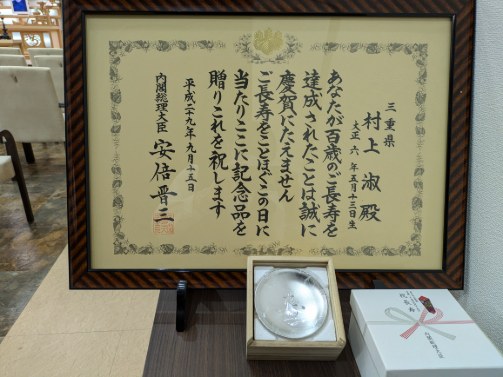 三重県
村上 淑殿
大正六年五月十三日生
あなたが百歳のご長寿を
達成されたことは誠に
慶賀にたえません
ご長寿をことほぐこの日に
当たりここに記念品を
贈りこれを祝します
平成二十九年九月十五日
内閣総理大臣 安倍晋三